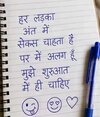 हर लड़का
अंत में
सेक्स चाहता है
पर में अलग हूँ
मुझे शुरुआत
में ही चाहिए